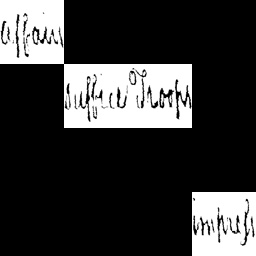 affair
suffice Troops
impress